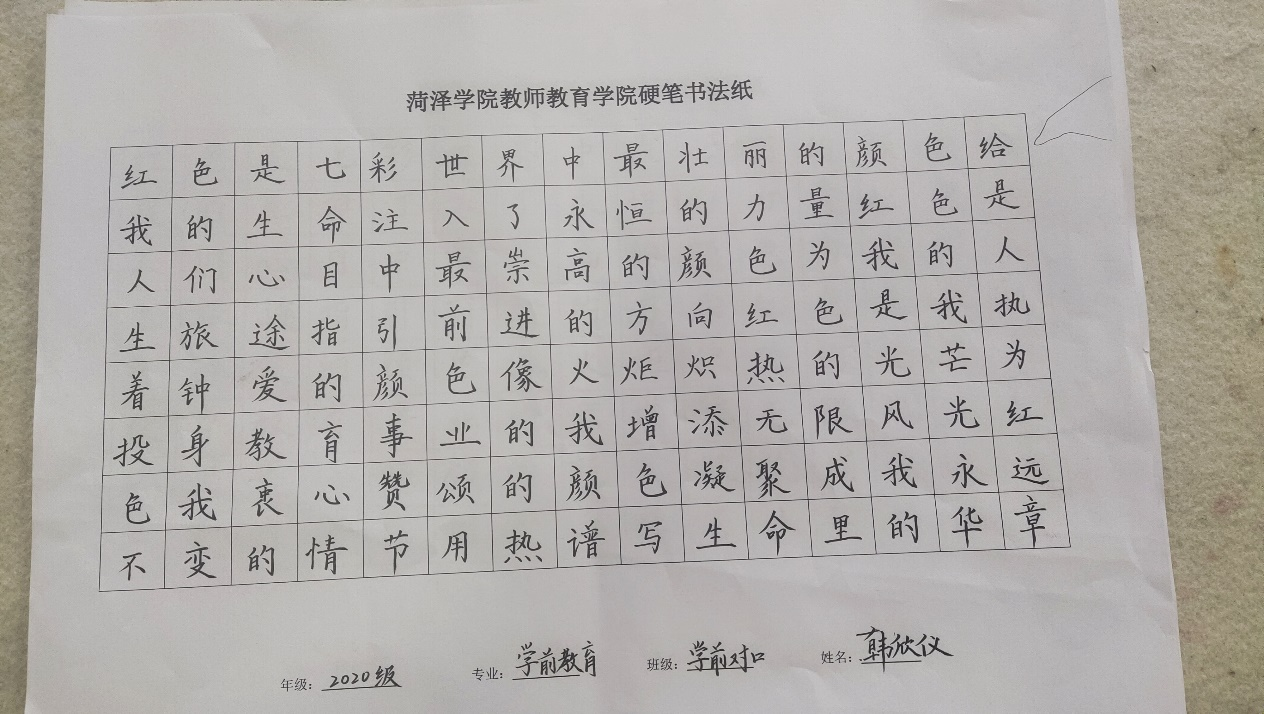 菏泽学院教师教育学院硬笔书法纸
红色是七彩世界中最壮丽的颜色给
我的生命注入了永恒的力量红色是
人们心目中最崇高的颜色为我的人
生旅途指引前进的方向红色是我执
着钟爱的颜色像火炬炽热的光芒为
投身教育事业的我增添无限风光红
色我衷心赞颂的颜色凝聚成我永远
不变的情节用热谱写生命里的华章
年级：2020级 专业：学前教育 班级：学前对口 姓名：韩欣仪